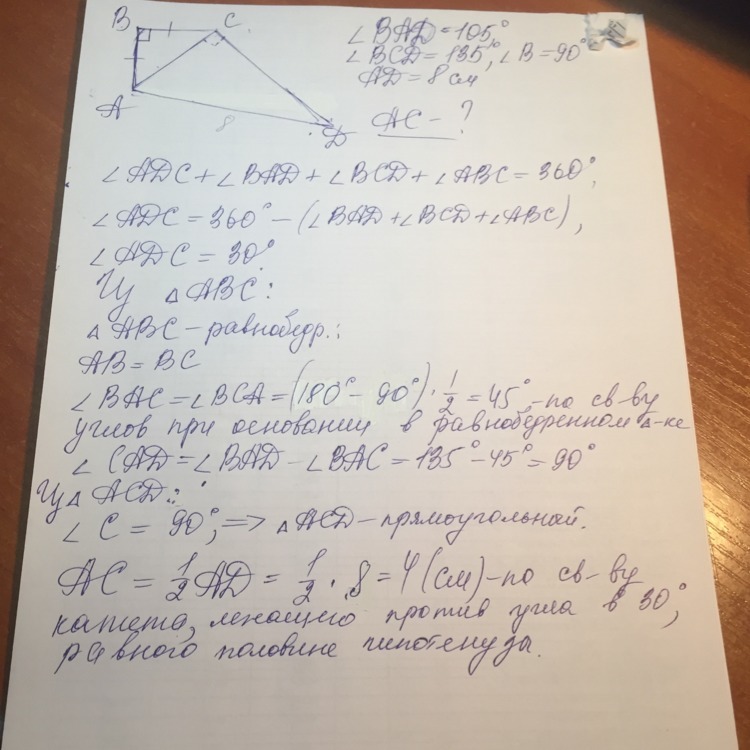 B
C
A
D
8
∠BAD=105°
∠BCD=135°, ∠B=90°
AD=8 см
AC-?
∠ADC+∠BAD+∠BCD+∠ABC=360°,
∠ADC=360°-(∠BAD+∠BCD+∠ABC),
∠ADC=30°
Из △ABC:
△ABC-равнобедр.:
AB=BC
∠BAC=∠BCA=(180°-90°)·1/2=45°,-по св-ву
углов при основании в равнобедренном △-ке
∠CAD=∠BAD-∠BAC=135°-45°=90°
Из △ACD:
∠C=90°, => △ACD-прямоугольный.
AC=1/2AD=1/2·8=4(см)-по св-ву
катета, лежащего против угла в 30°,
равного половине гипотенузы.